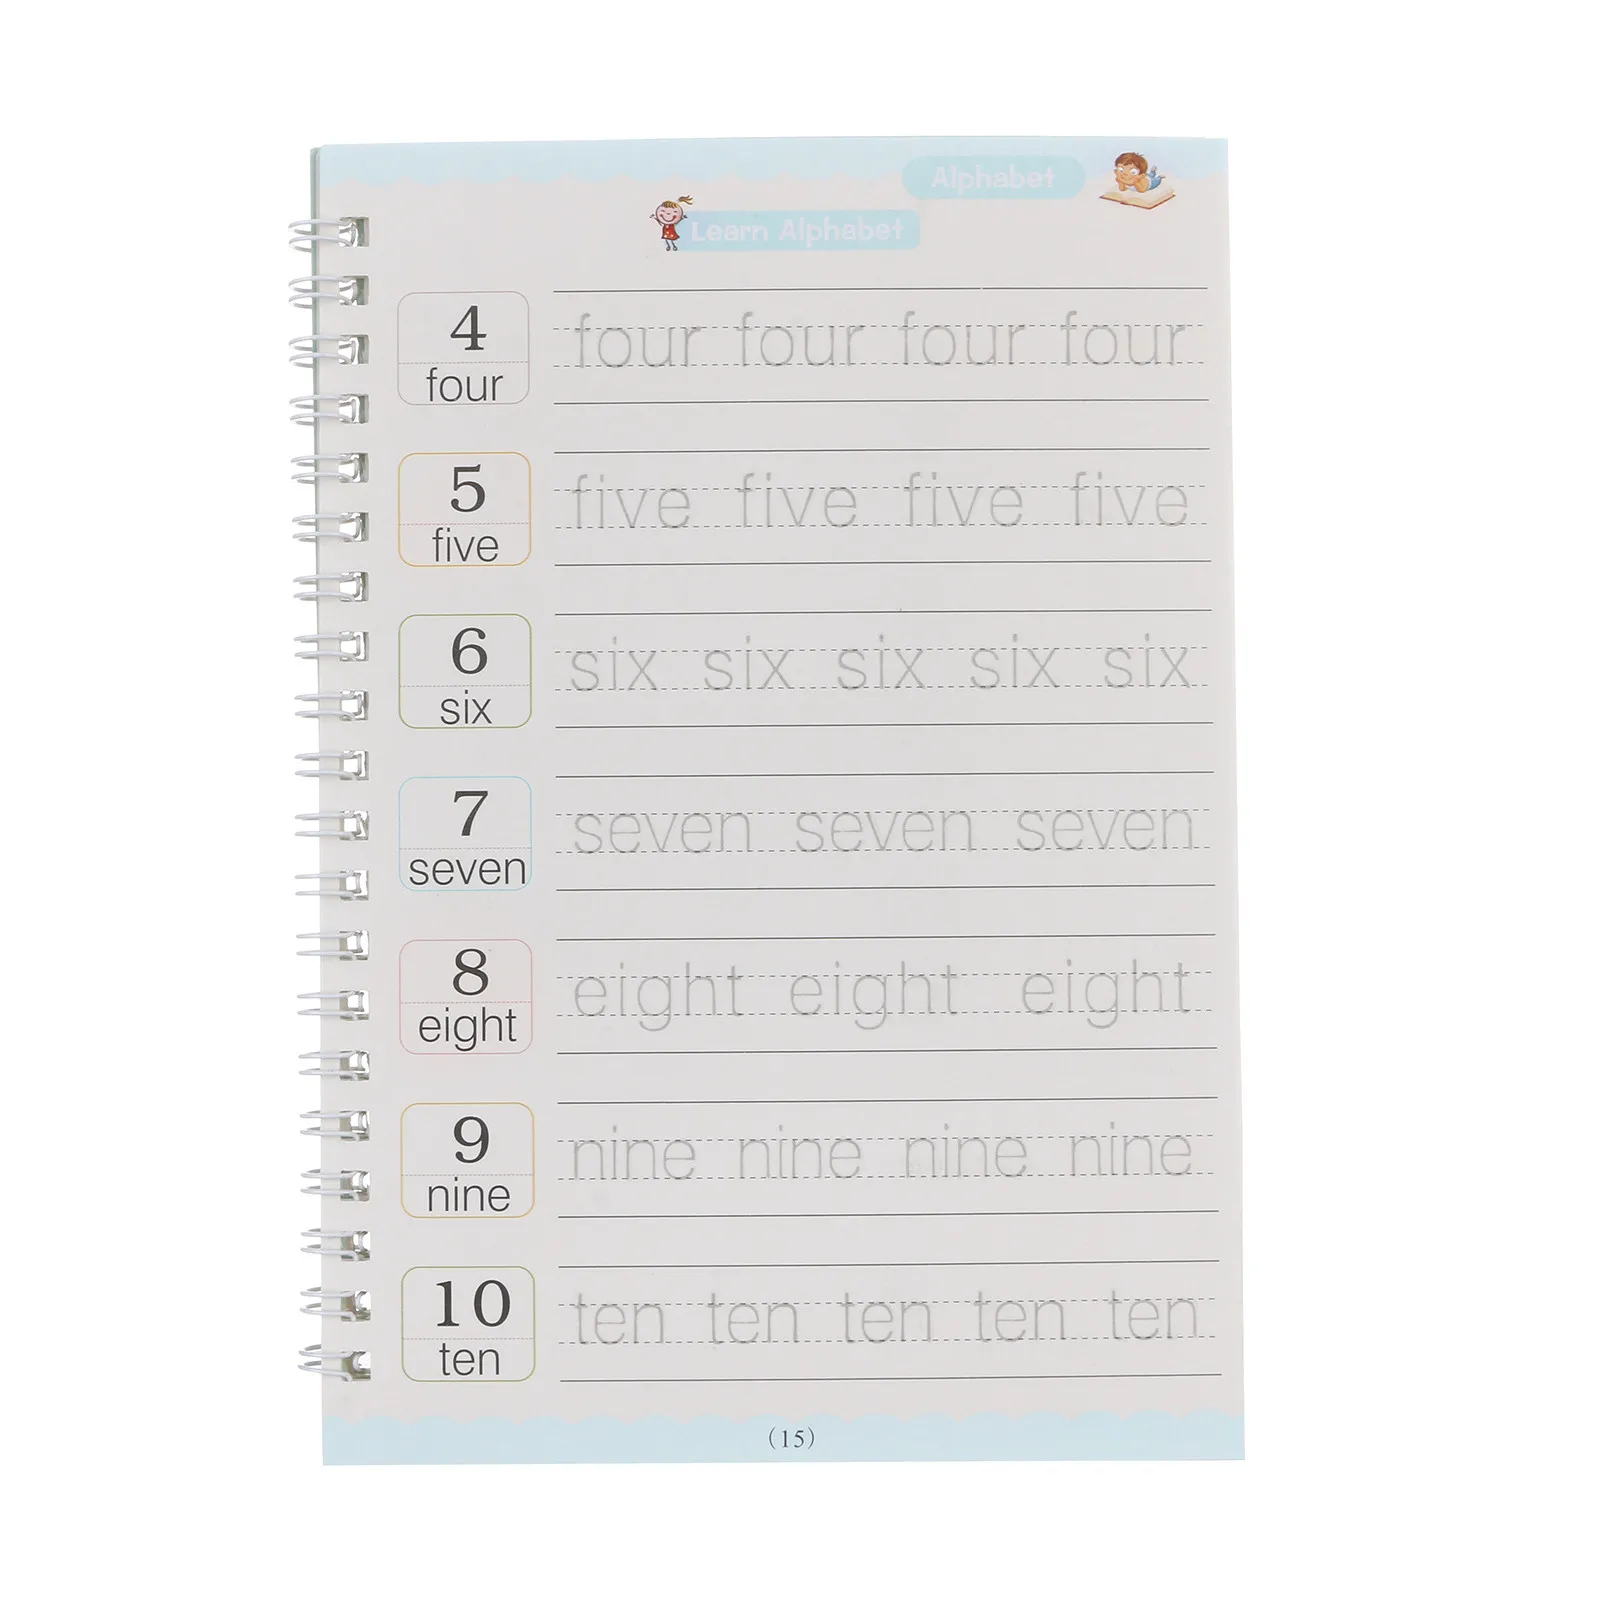 Alphabet
Learn Alphabet
4 four four four four
four
5 five five five five
five
6 six six six six six
six
7 seven seven seven
seven
8 eight eight eight
eight
9 nine nine nine nine
nine
10 ten ten ten ten ten
ten
(15)